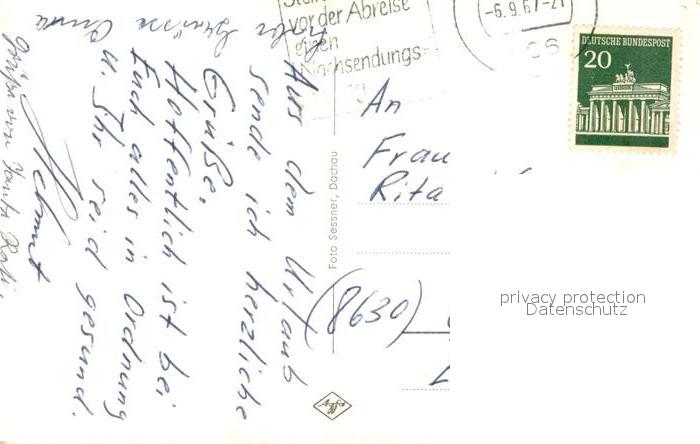 vor der Abreise
einen
Nachsendungs-
-6.9.67-21
DEUTSCHE BUNDESPOST
20
Aus dem Urlaub
sende ich herzliche
Grüße.
Hoffentlich ist bei
Euch alles in Ordnung
u. Ihr seid gesund.
Helmut
Grüße von Tante
Foto Sessner, Dachau
An
Frau
Rita
(8630)
Agfa
privacy protection
Datenschutz